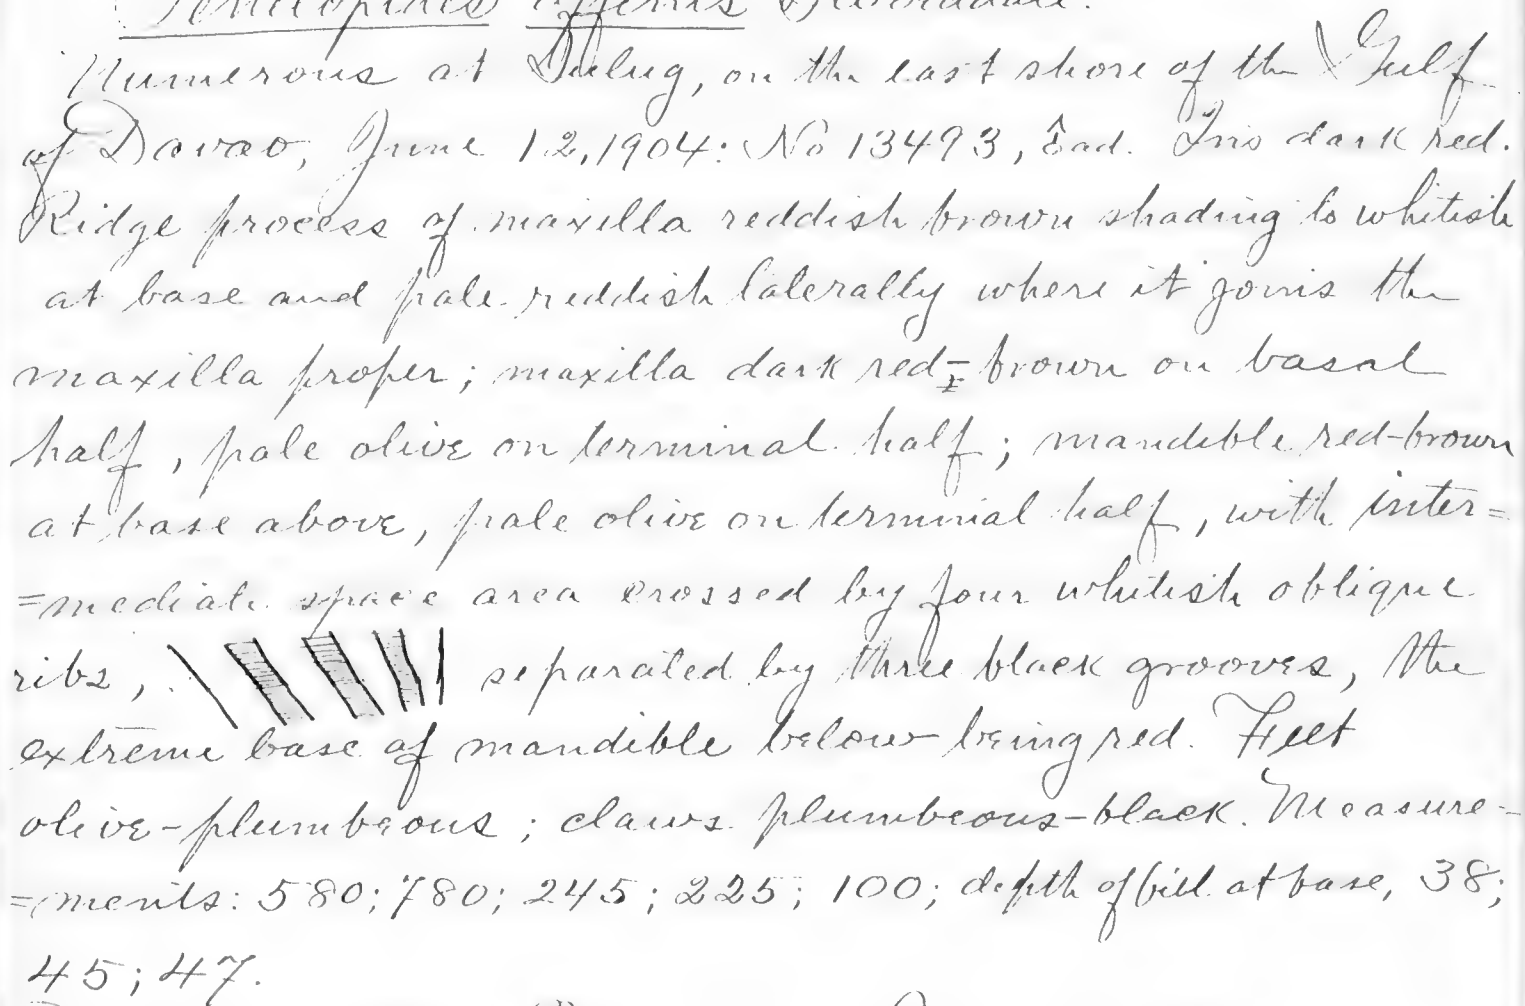 Penelopides affinis
Numerous at Pulug, on the east shore of the Gulf
of Davao, June 12, 1904: No 13493, ♂ad. Iris dark red.
Ridge process of maxilla reddish brown shading to whitish
at base and pale reddish laterally where it joins the
maxilla proper; maxilla dark red-brown on basal
half, pale olive on terminal half; mandible red-brown
at base above, pale olive on terminal half, with inter=
=mediate space area crossed by four whitish oblique
ribs, separated by three black grooves, the
extreme base of mandible below being red. Feet
olive-plumbeous; claws plumbeous-black. Measure-
=ments: 580; 780; 245; 225; 100; depth of bill at base, 38;
45; 47.